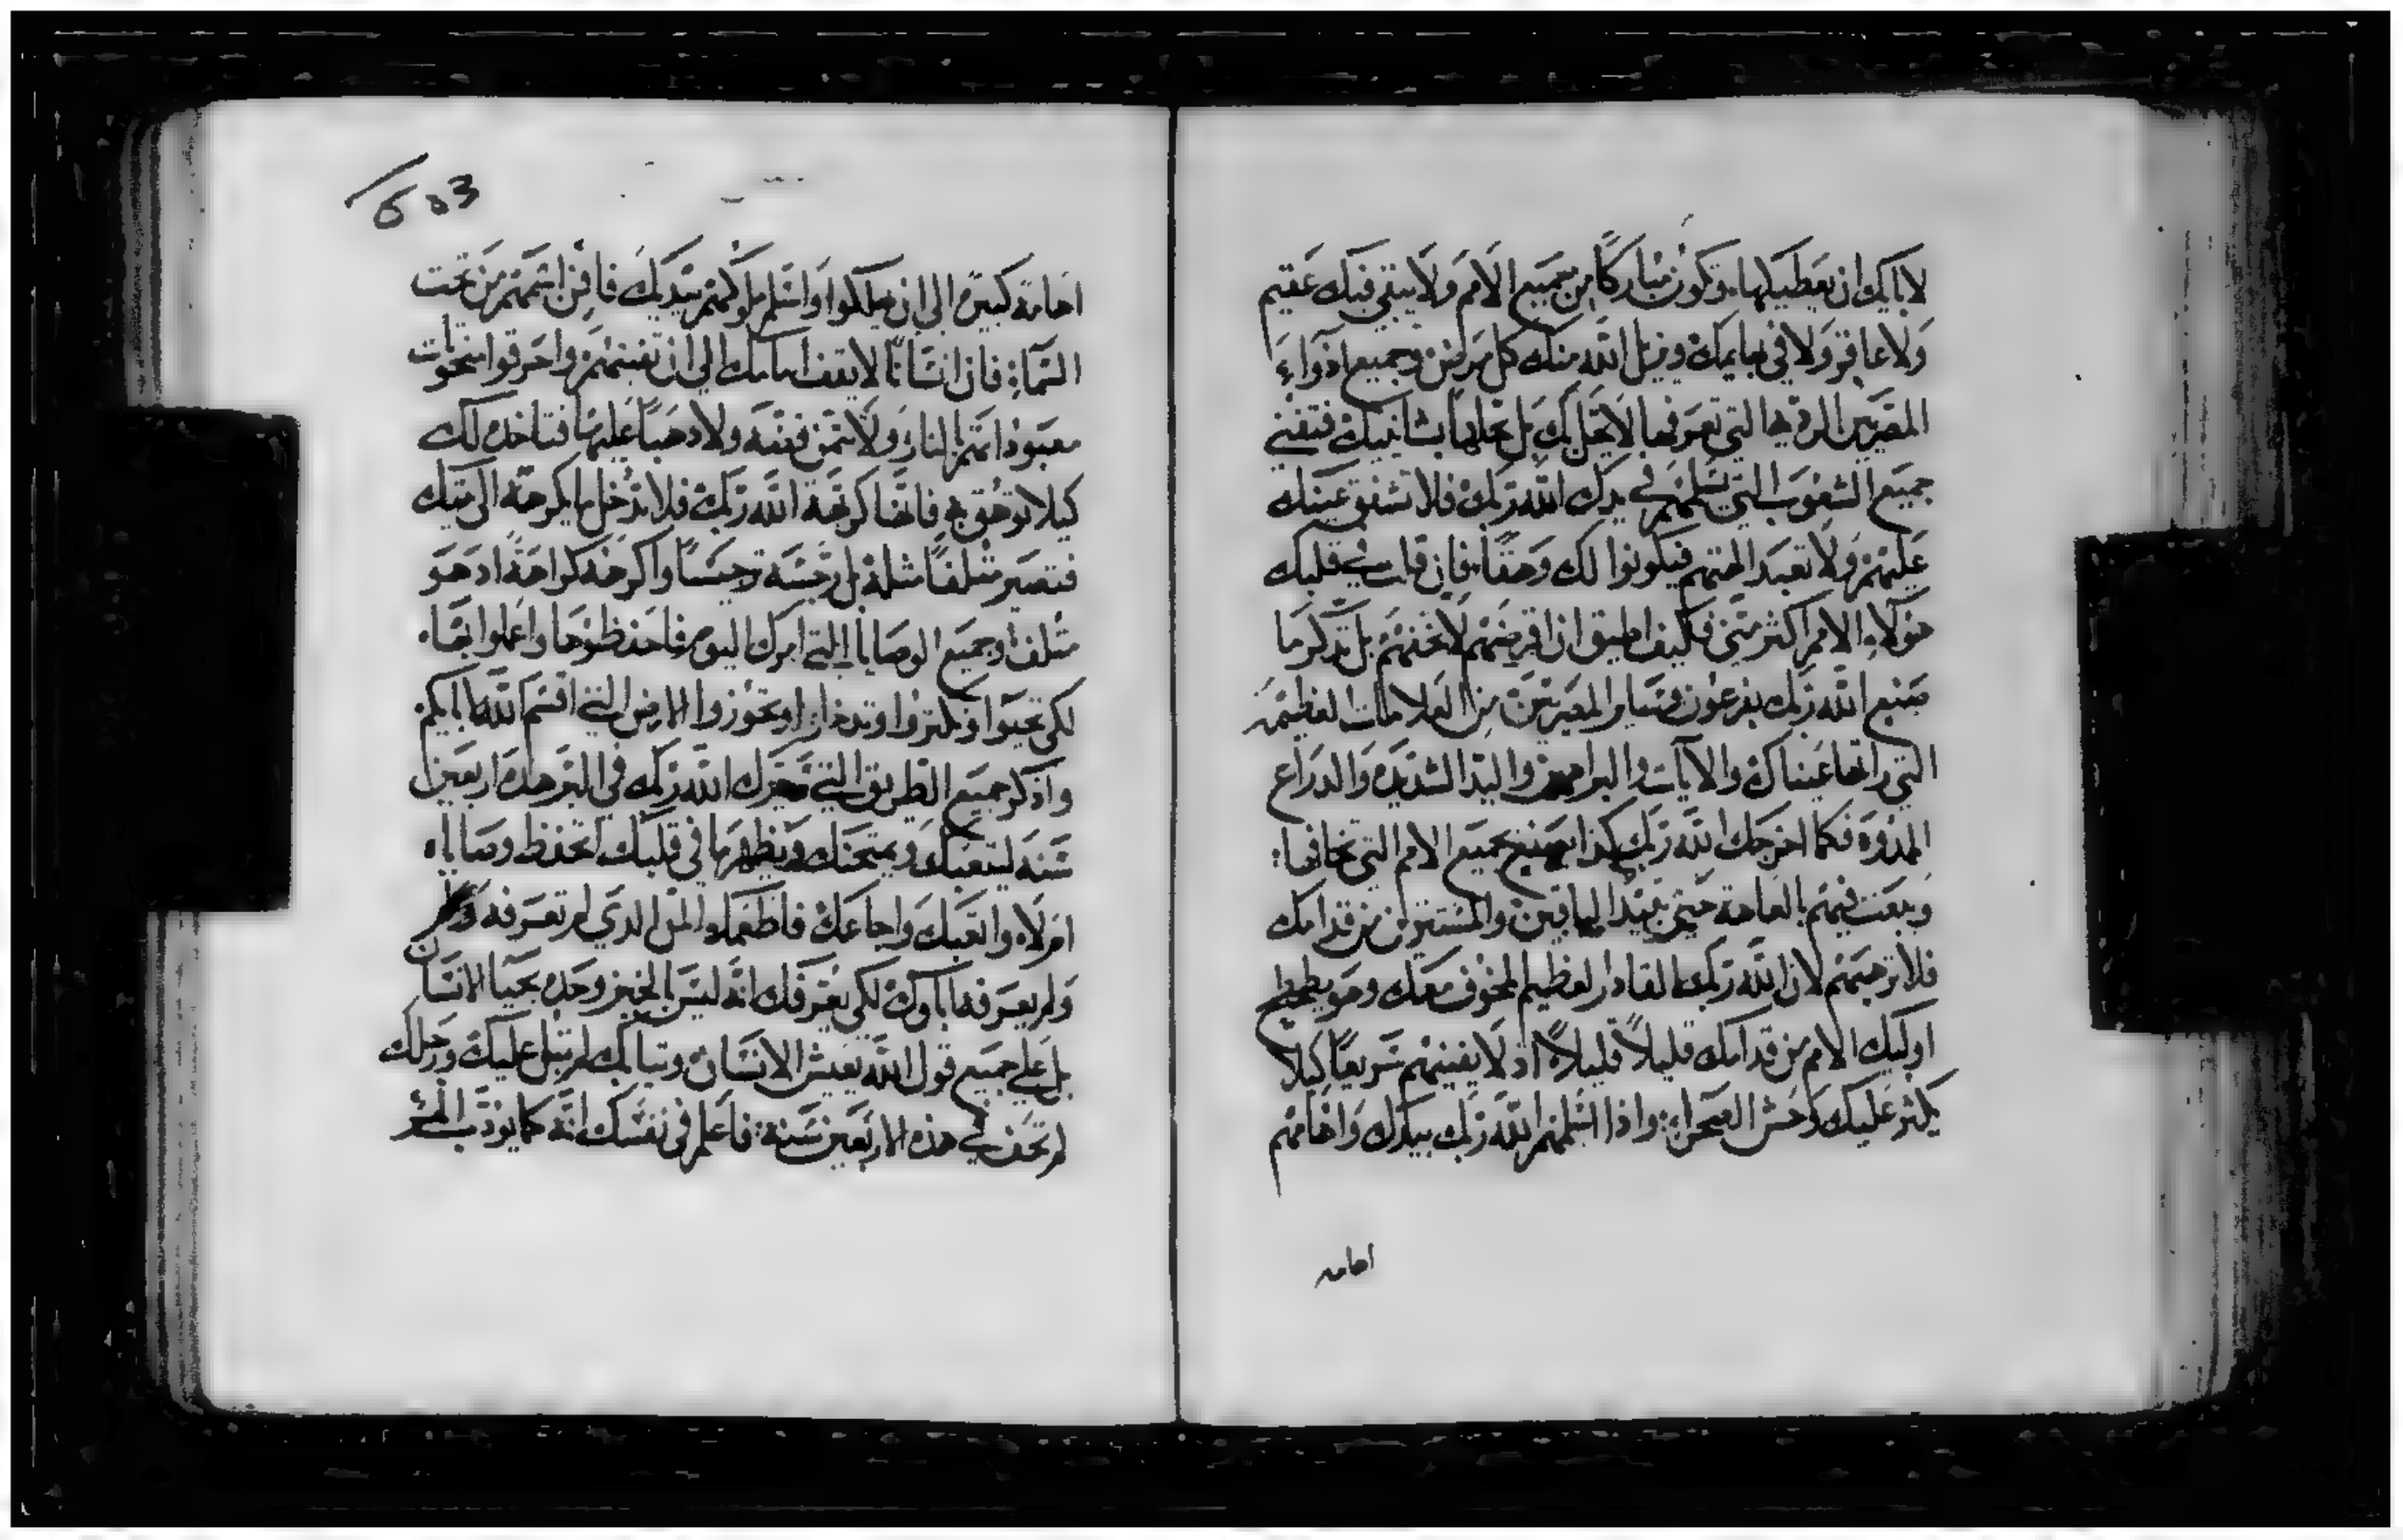 لابايك ان يعطيكها وتكون مباركًا من جميع الامم ولا يبقي فيك عقيم
ولا عاقر ولا في بهايمك ويزيل الله منك كل مرض وجميع ادواء
المصريين الرديه التي تعرفها لا يحل بك بل يحلها بشانييك فتفني
جميع الشعوب التي يسلمهم في يدك الله ربك فلا تشفق عينك
عليهم ولا تعبد الهتهم فيكونوا لك وهقًا فان قلت في قلبك
هولاء الامم اكثر مني فكيف اطيق ان اقرضهم لا تخفهم بل تذكر ما
صنع الله ربك بفرعون وساير المصريين من العلامات العظيمه
التي راتها عيناك والايات والبراهين واليد الشديده والدراع
الممدوده فكما اخرجك الله ربك كذا يصنع بجميع الامم التي تخافها
ويبعت فيهم العاهة حتي يبيد الباقين والمستترين من قدامك
فلا ترهبهم لان الله ربك القادر العظيم المخوف معك وهو يطحطح
اوليك الامم من قدامك قليلاً قليلاً اذ لا يفنيهم سريعًا كيلا
يكثر عليك وحش الصحراء واذا اسلمهم الله ربك بيدك واهامهم
اهامه
603
اهامة كبيره الي ان يهلكوا واسلم ملوكهم بيديك فافن اسمهم من تحت
السماء فان انسانًا لا يقف امامك الي ان تفنيهم واحرقوا منحوتات
معبوداتهم بالنار ولا تتمن فضه ولا دهبًا عليها فتاخده لك
كيلا توهق به فانها كرهة الله ربك فلا تدخل ما يكرهه الي بيتك
فتصير متلفًا مثله بل رجسه ترجيسًا واكرهه كراهة اد هو
متلف وجميع الوصايا التي امرك اليوم فاحفظوها واعملوا بها
لكي تحيوا وتكتروا وتدخلوا وتحوزوا الارض التي اقسم الله لابايكم
واذكر جميع الطريق التي سيرك الله ربك في البر هده اربعين
سنه ليتعبك ويمتحنك ويظهر ما في قلبك اتحفظ وصاياه
ام لا واتعبك واجاعك فاطعمك المن الدي لم تعرفه
ولم يعرفه اباوك لكي يعرفك انه ليس بالخبز وحده يحيا الانسان
بل علي جميع قول الله يعيش الانسان وثيابك لم تبل عليك ورجلك
لم تحف في هذه الاربعين سنه فاعلم في نفسك انه كما يودب المرء